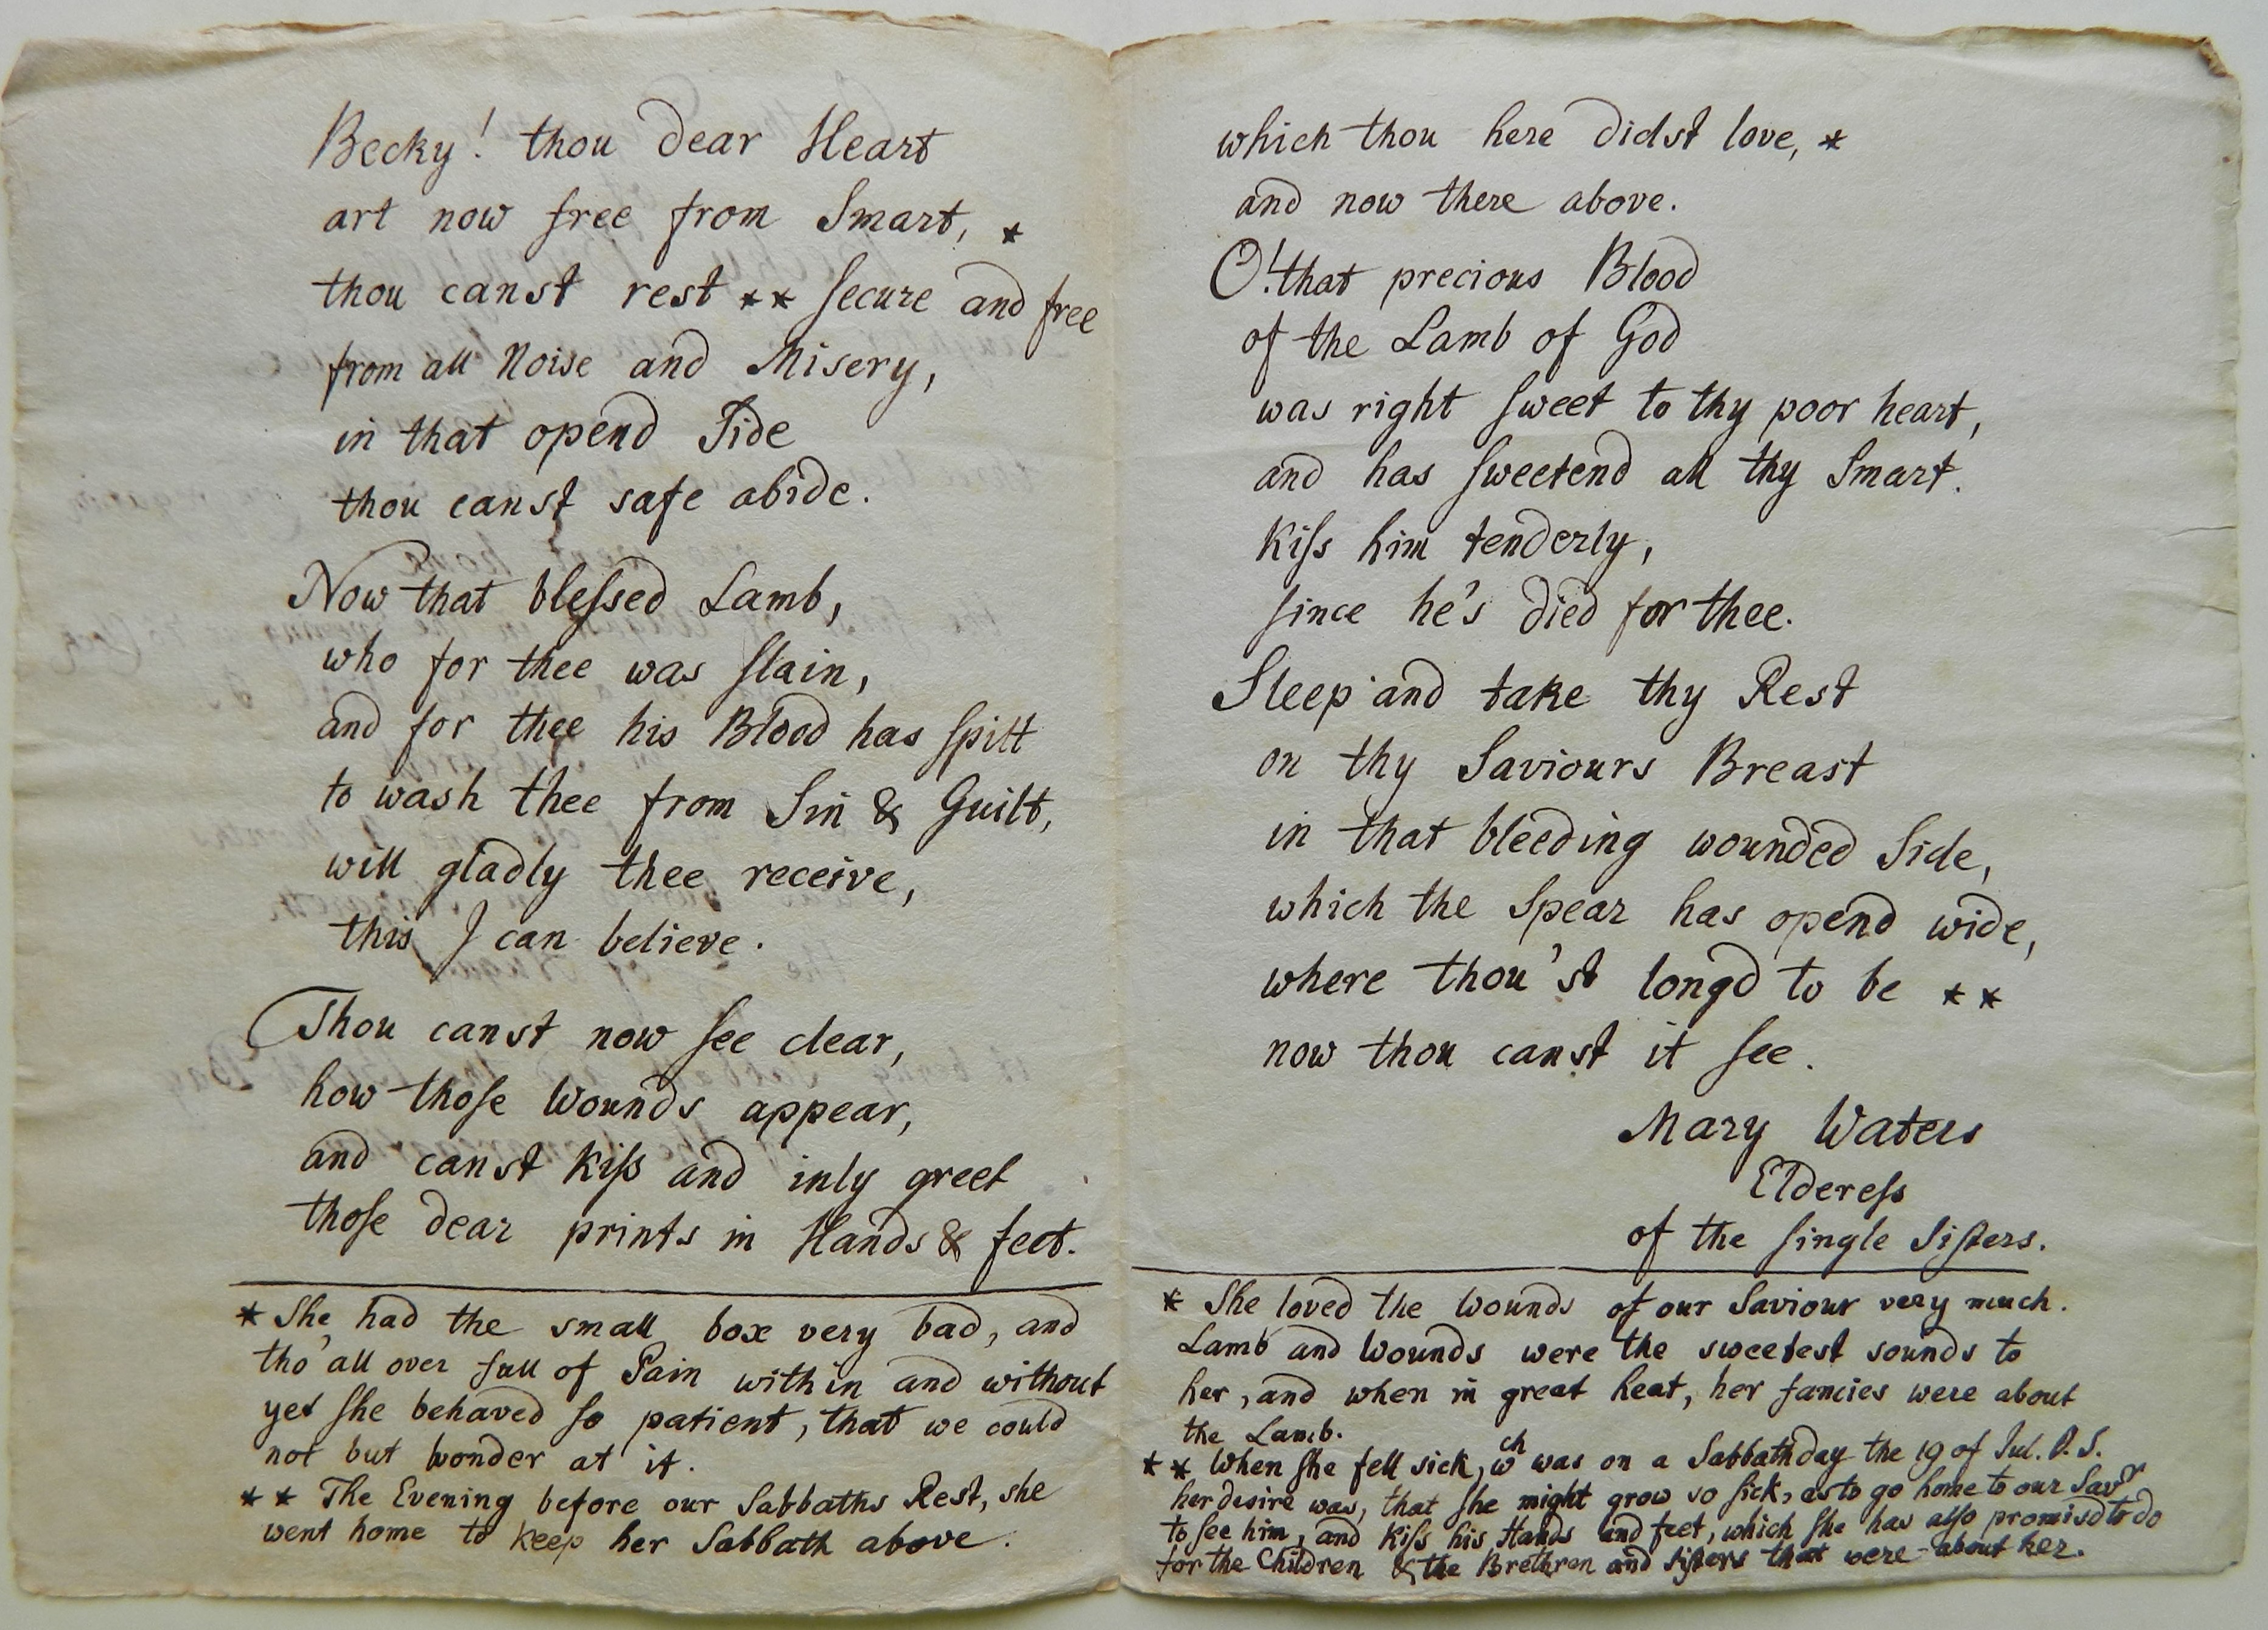 Becky! thou dear Heart
art now free from Smart, *
thou canst rest ** secure and free
from all Noise and Misery,
in that opend Side
thou canst safe abide.
Now that blessed Lamb,
who for thee was slain,
and for thee his Blood has spilt
to wash thee from Sin & Guilt,
will gladly thee receive,
this I can believe.
Thou canst now see clear,
how those Wounds appear,
and canst kiss and inly greet
those dear prints in Hands & feet.
* She had the small box very bad, and
tho' all over full of Pain within and without
yet she behaved so patient, that we could
not but wonder at it.
** The Evening before our Sabbaths Rest, she
went home to keep her Sabbath above.
which thou here didst love, *
and now there above.
O! that precious Blood
of the Lamb of God
was right sweet to thy poor heart,
and has sweetend all thy Smart.
Kiss him tenderly,
since he's died for thee.
Sleep and take thy Rest
on thy Saviours Breast
in that bleeding wounded Side,
which the Spear has opend wide,
where thou'st longd to be **
now thou canst it see.
Mary Waters
Elderess
of the single Sisters.
* She loved the Wounds of our Saviour very much.
Lamb and Wounds were the sweetest sounds to
her, and when in great heat, her fancies were about
the Lamb.
** When she fell sick, wch was on a Sabbathday the 19 of Jul. O. S.
her desire was, that she might grow so sick, as to go home to our Savr
to see him, and kiss his Hands and feet, which she has also promisd to do
for the Children & the Brethren and Sisters that were about her.